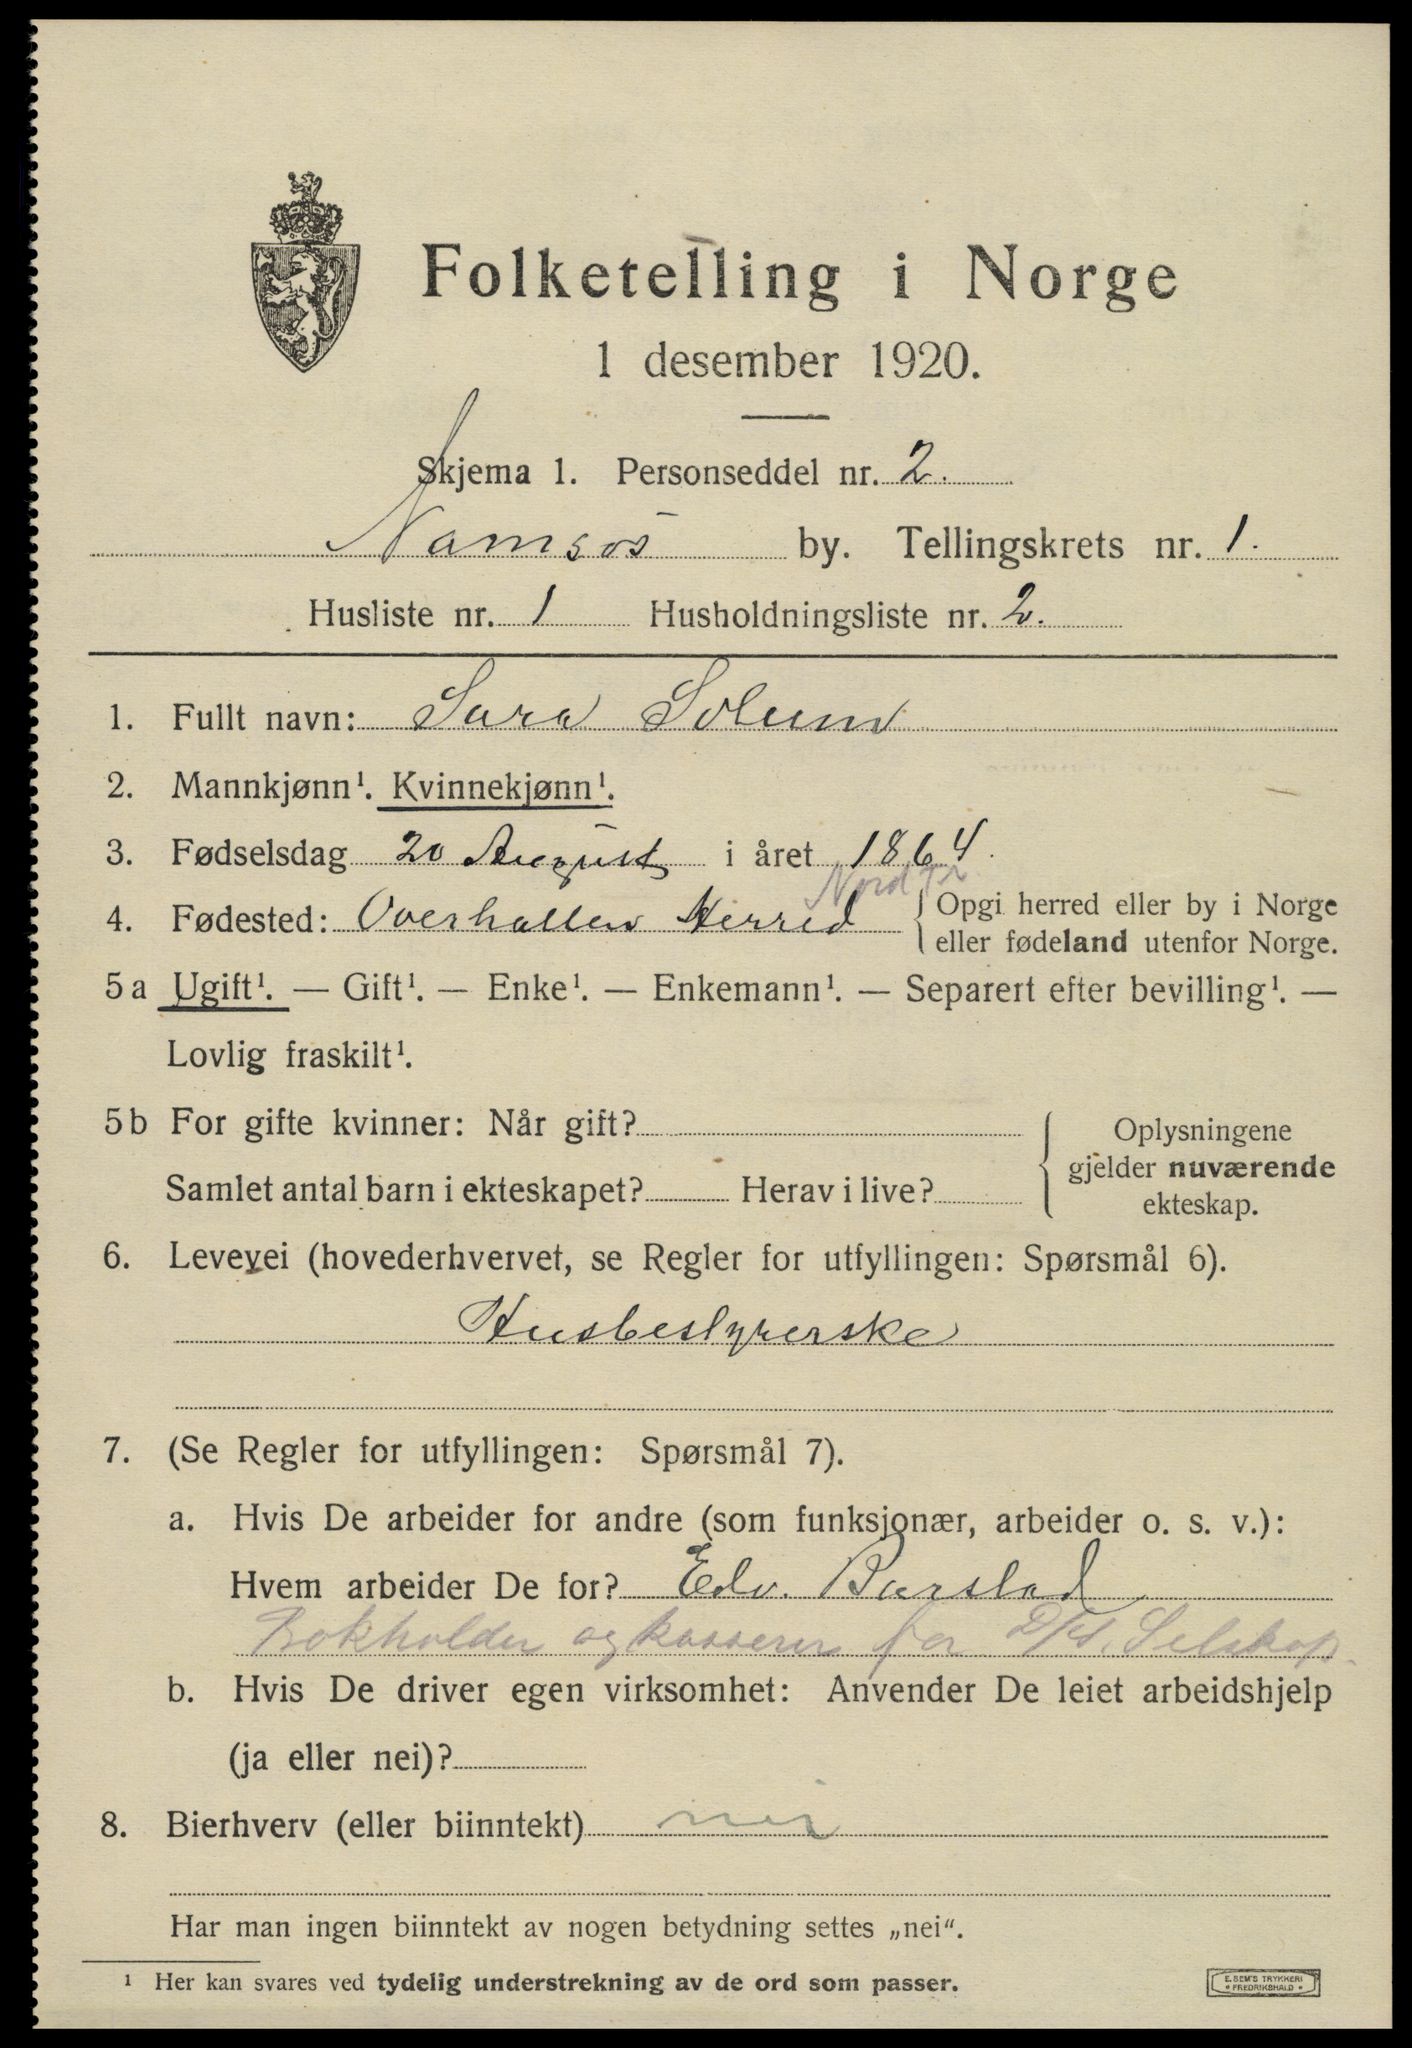 Folketelling i Norge
1 desember 1920.
Skjema 1. Personseddel nr. 2.
Namsos by. Tellingskrets nr. 1.
Husliste nr. 1 Husholdningsliste nr. 2.
1. Fullt navn: Sara Solum
2. Mannkjønn¹. Kvinnekjønn¹.
3. Fødselsdag 20 August i året 1864.
Nord Tr
4. Fødested: Overhallen Herred { Opgi herred eller by i Norge
eller fødeland utenfor Norge.
5a Ugift¹. — Gift¹. — Enke¹. — Enkemann¹. — Separert efter bevilling¹. —
Lovlig fraskilt¹.
5b For gifte kvinner: Når gift?
Samlet antal barn i ekteskapet? Herav i live?
Oplysningene
gjelder nuværende
ekteskap.
6. Levevei (hovederhvervet, se Regler for utfyllingen: Spørsmål 6).
Husbestyrerske
7. (Se Regler for utfyllingen: Spørsmål 7).
a. Hvis De arbeider for andre (som funksjonær, arbeider o. s. v.):
Hvem arbeider De for? Edv. Barslad
Bokholder og kasserer for Selskap.
b. Hvis De driver egen virksomhet: Anvender De leiet arbeidshjelp
(ja eller nei)?
8. Bierhverv (eller biinntekt) nei
Har man ingen biinntekt av nogen betydning settes „nei“.
¹ Her kan svares ved tydelig understrekning av de ord som passer.
E. SEM'S TRYKKERI
• FREDRIKSHALD •